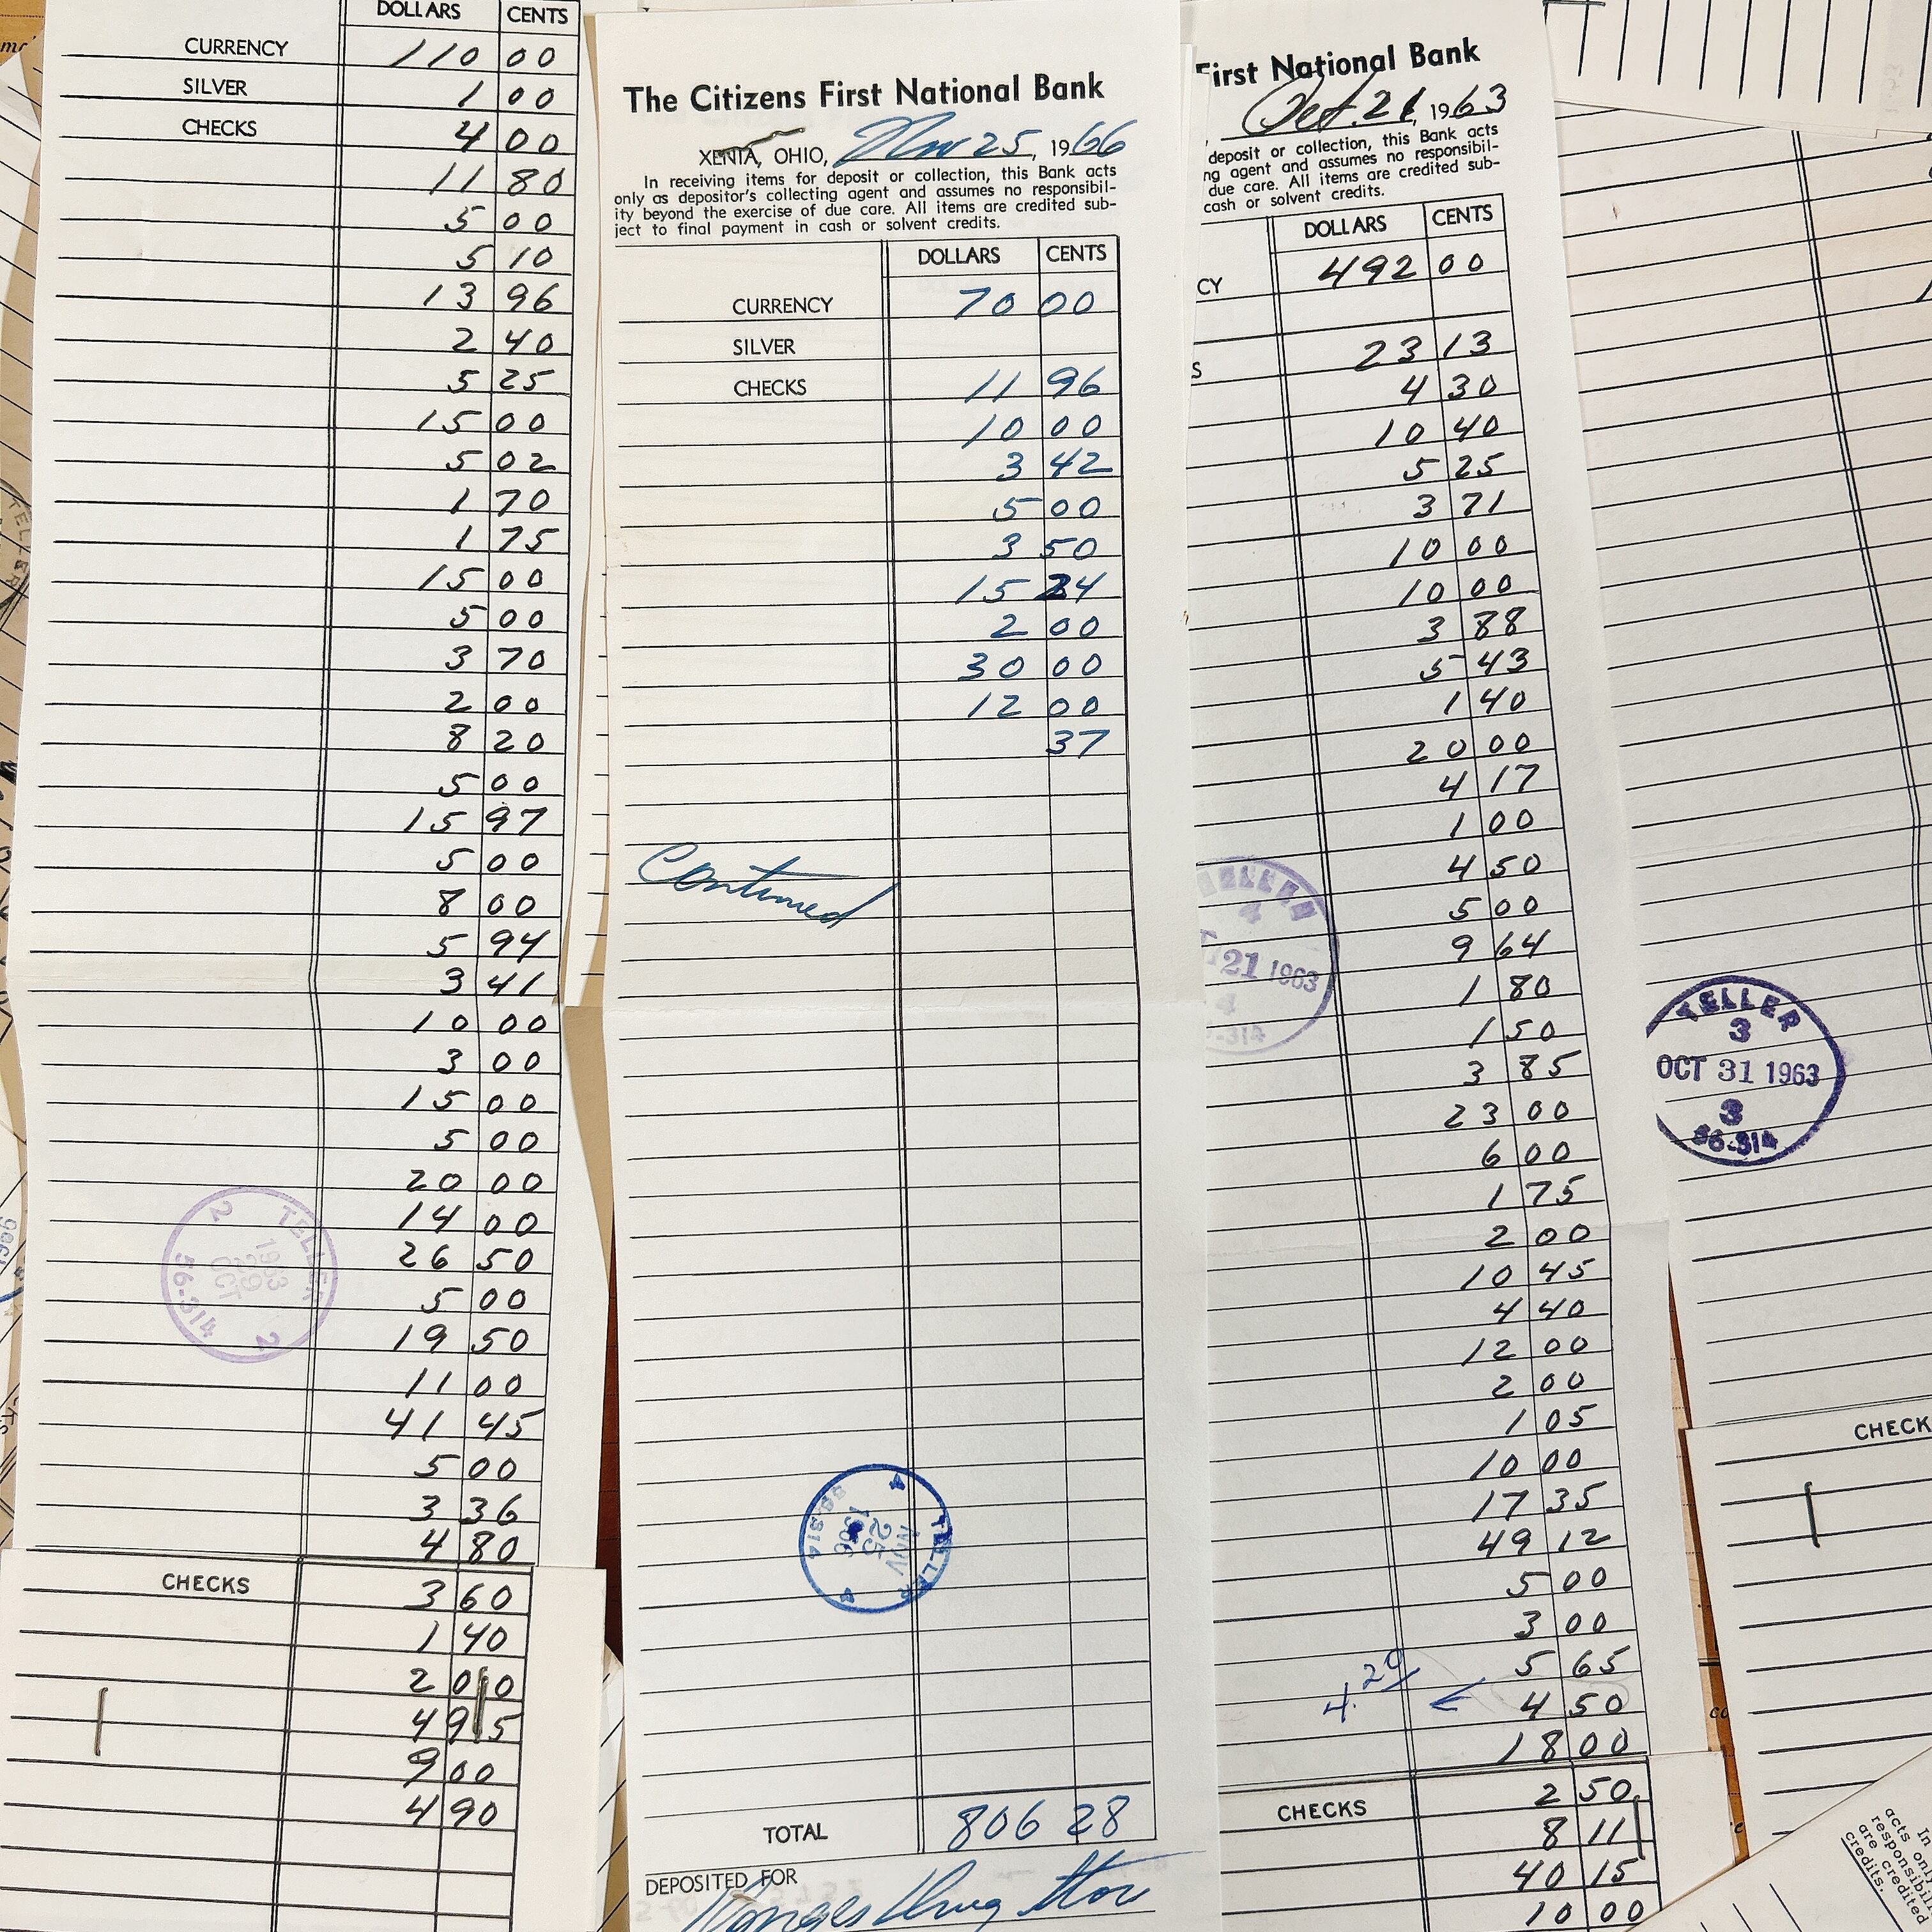 DOLLARS CENTS
CURRENCY 110 00
SILVER 1 00
CHECKS 4 00
11 80
5 00
5 10
13 96
2 40
5 25
15 00
5 02
1 70
1 75
15 00
5 00
3 70
2 00
8 20
5 00
15 97
5 00
8 00
5 94
3 41
10 00
3 00
15 00
5 00
20 00
14 00
26 50
5 00
19 50
11 00
41 45
5 00
3 36
4 80
CHECKS 3 60
1 40
2 00
4 95
9 00
4 90
TELLER
2
OCT
29
1963
2
56-314
The Citizens First National Bank
XENIA, OHIO, Nov 25, 1966
In receiving items for deposit or collection, this Bank acts
only as depositor's collecting agent and assumes no responsibil-
ity beyond the exercise of due care. All items are credited sub-
ject to final payment in cash or solvent credits.
DOLLARS CENTS
CURRENCY 70 00
SILVER
CHECKS 11 96
10 00
3 42
5 00
3 50
15 24
2 00
30 00
12 00
37
Continued
TELLER
4
NOV
25
1966
4
56-314
TOTAL 806 28
DEPOSITED FOR
Drug Store
First National Bank
Oct. 21, 1963
deposit or collection, this Bank acts
ng agent and assumes no responsibil-
due care. All items are credited sub-
cash or solvent credits.
DOLLARS CENTS
CY 492 00
S 23 13
4 30
10 40
5 25
3 71
10 00
10 00
3 88
5 43
1 40
20 00
4 17
1 00
4 50
5 00
9 64
1 80
1 50
3 85
23 00
6 00
1 75
2 00
10 45
4 40
12 00
2 00
1 05
10 00
17 35
49 12
5 00
3 00
5 65
4.20 ← 4 50
18 00
CHECKS 2 50
8 11
40 15
10 00
TELLER
4
21 1963
4
-314
TELLER
3
OCT 31 1963
3
56-314
CHECK
In
acts only
responsibil
are credited
credits.